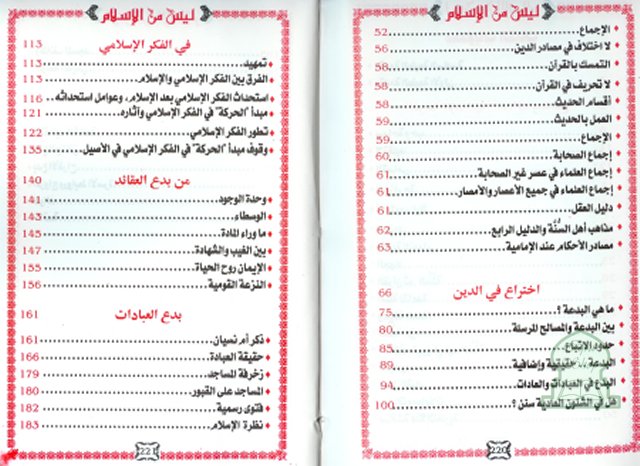 ليس من الإسلام
الإجماع 52
لا اختلاف في مصادر الدين 56
التمسك بالقرآن 58
لا تحريف في القرآن 58
أقسام الحديث 58
العمل بالحديث 59
الإجماع 59
إجماع الصحابة 60
إجماع العلماء في عصر غير الصحابة 61
إجماع العلماء في جميع الأعصار والأمصار 61
دليل العقل 61
مذاهب أهل السُنَّة والدليل الرابع 62
مصادر الأحكام عند الإمامية 63
اختراع في الدين 66
ما هي البدعة ؟ 75
بين البدعة والمصالح المرسلة 80
حدود الاتباع 85
البدعة حقيقية وإضافية 89
البدع في العبادات والعادات 94
هل في الشئون العادية سنن ؟ 100
220
ليس من الإسلام
في الفكر الإسلامي 113
تمهيد 113
الفرق بين الفكر الإسلامي والإسلام 113
استحداث الفكر الإسلامي بعد الإسلام، وعوامل استحداثه 116
مبدأ "الحركة" في الفكر الإسلامي وآثاره 121
تطور الفكر الإسلامي 122
وقوف مبدأ "الحركة" في الفكر الإسلامي في الأصيل 135
من بدع العقائد 140
وحدة الوجود 141
الوسطاء 143
ما وراء المادة 145
بين الغيب والشهادة 147
الإيمان روح الحياة 155
النزعة القومية 156
بدع العبادات 161
ذكر أم نسيان 161
حقيقة العبادة 166
زخرفة المساجد 179
المساجد على القبور 180
فتوى رسمية 182
نظرة الإسلام 183
221